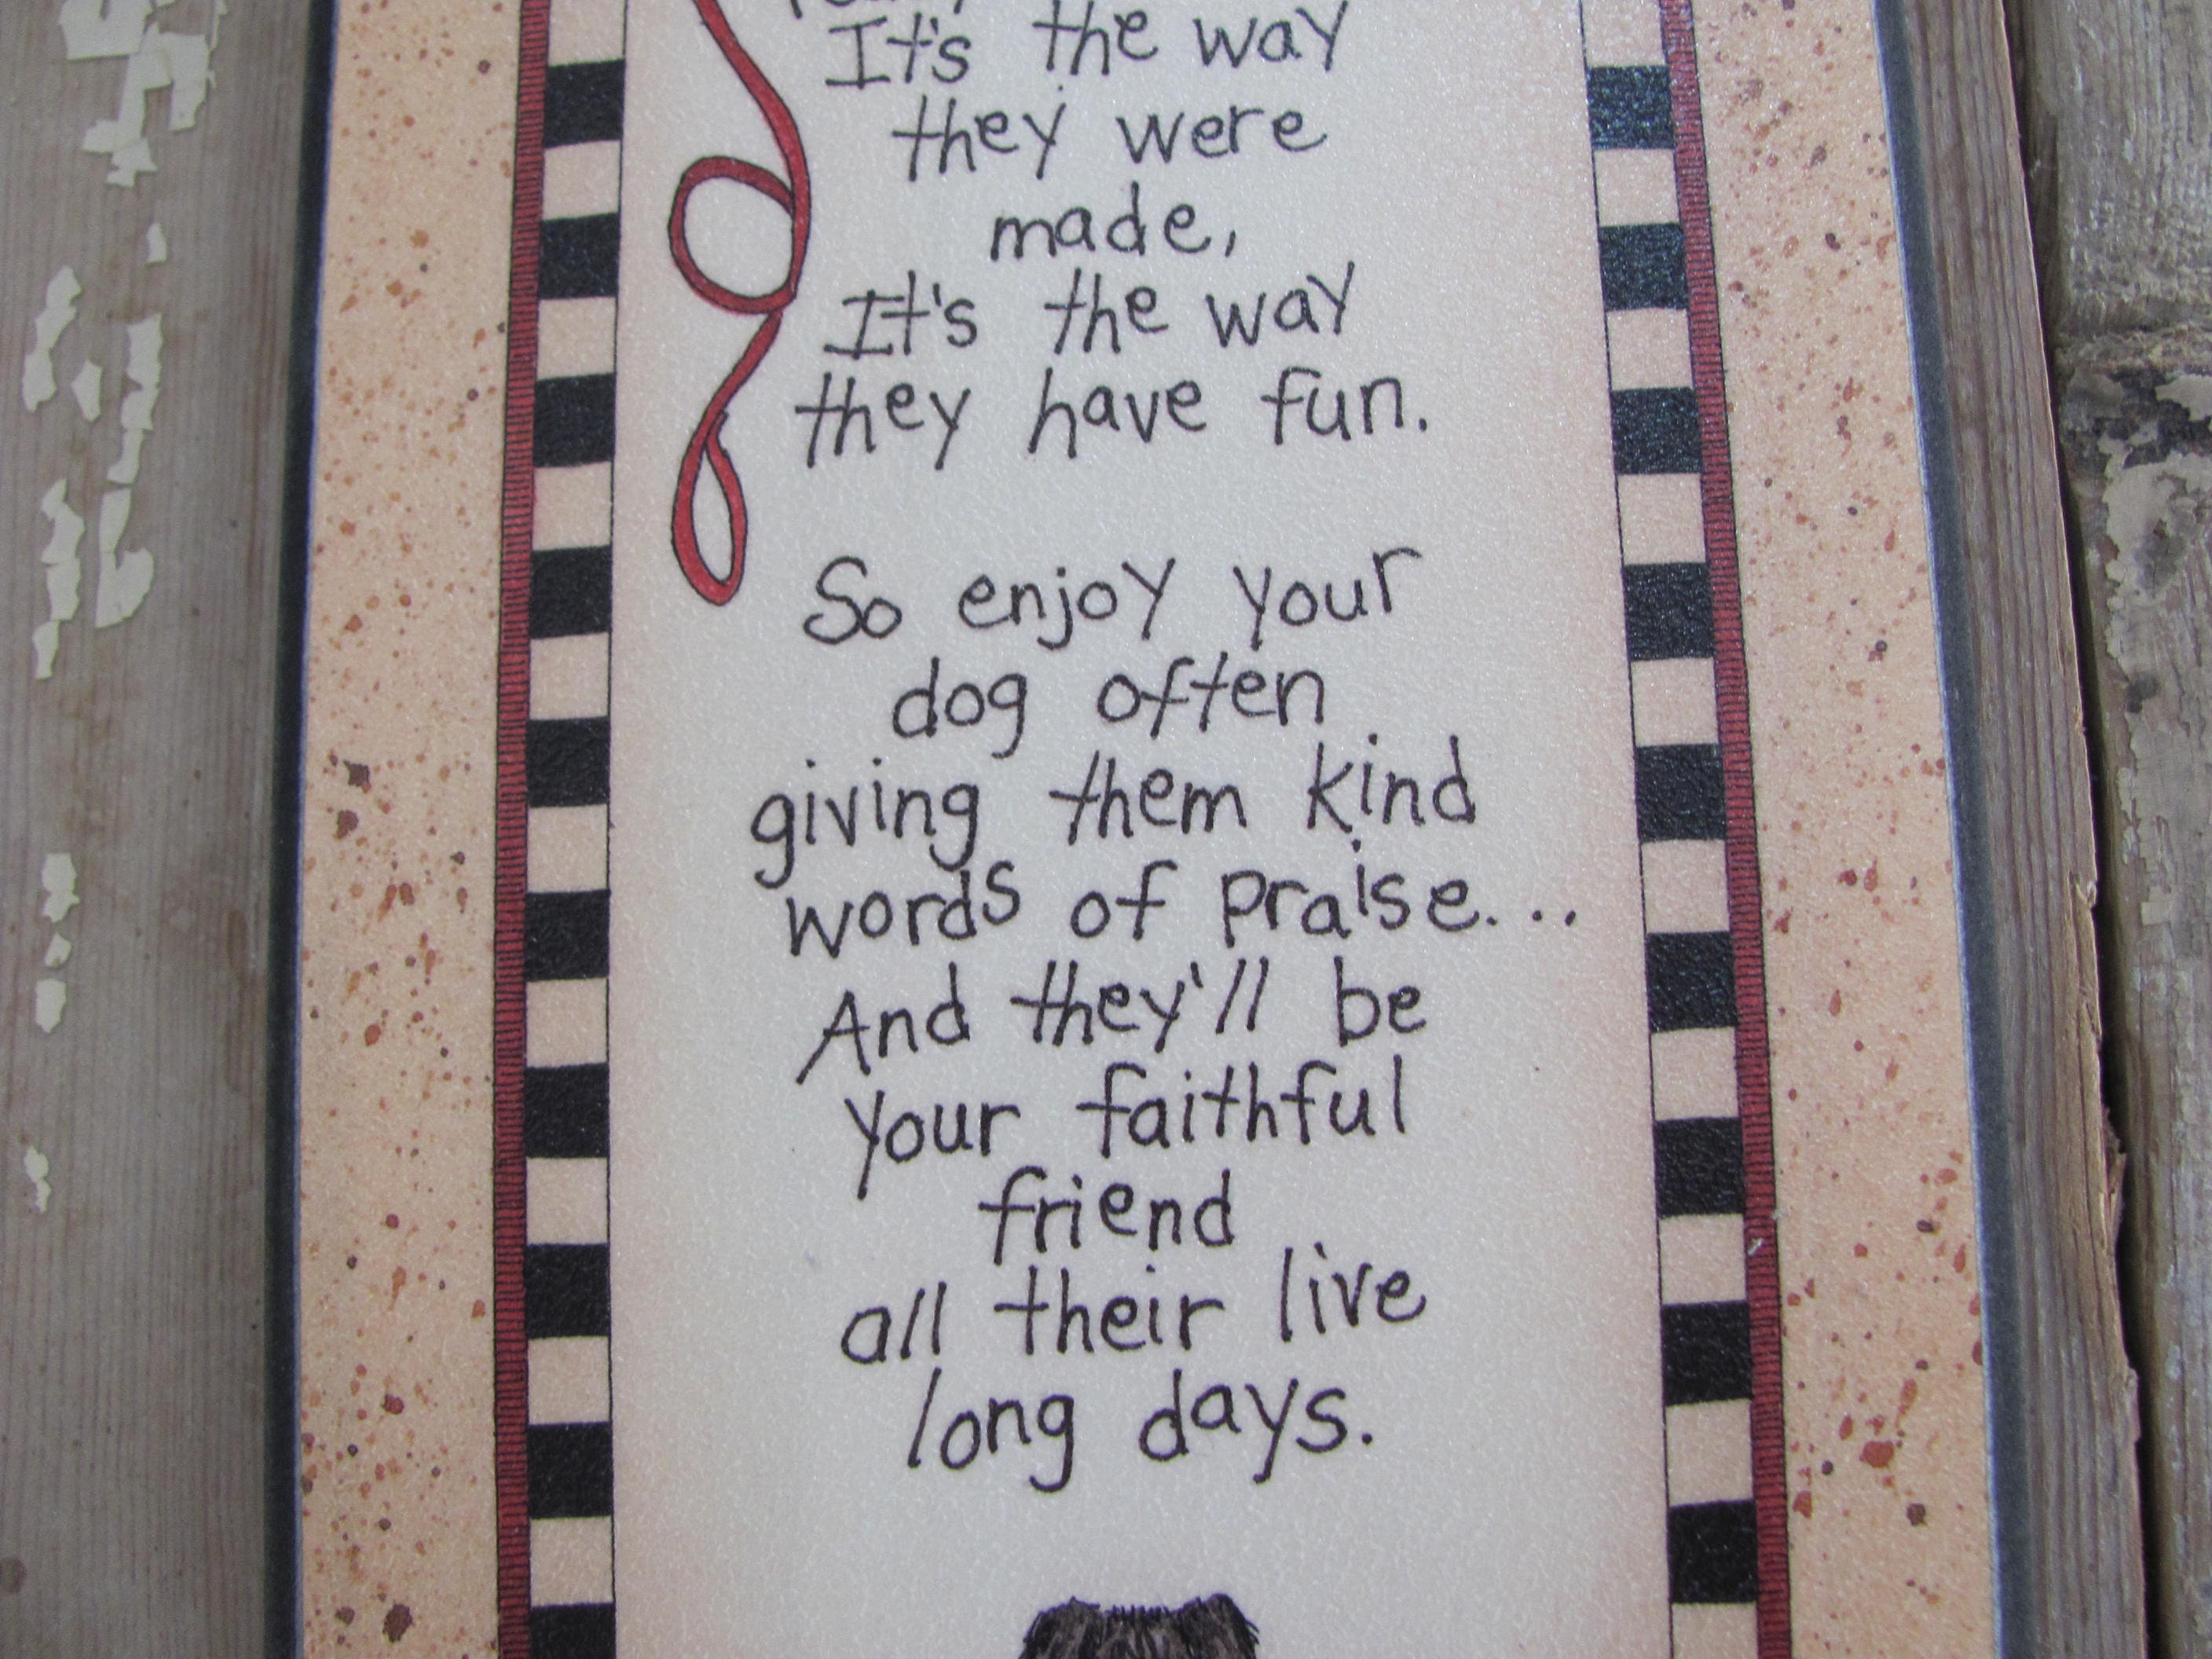 It's the way
they were
made,
It's the way
they have fun.
So enjoy your
dog often
giving them kind
words of praise...
And they'll be
your faithful
friend
all their live
long days.